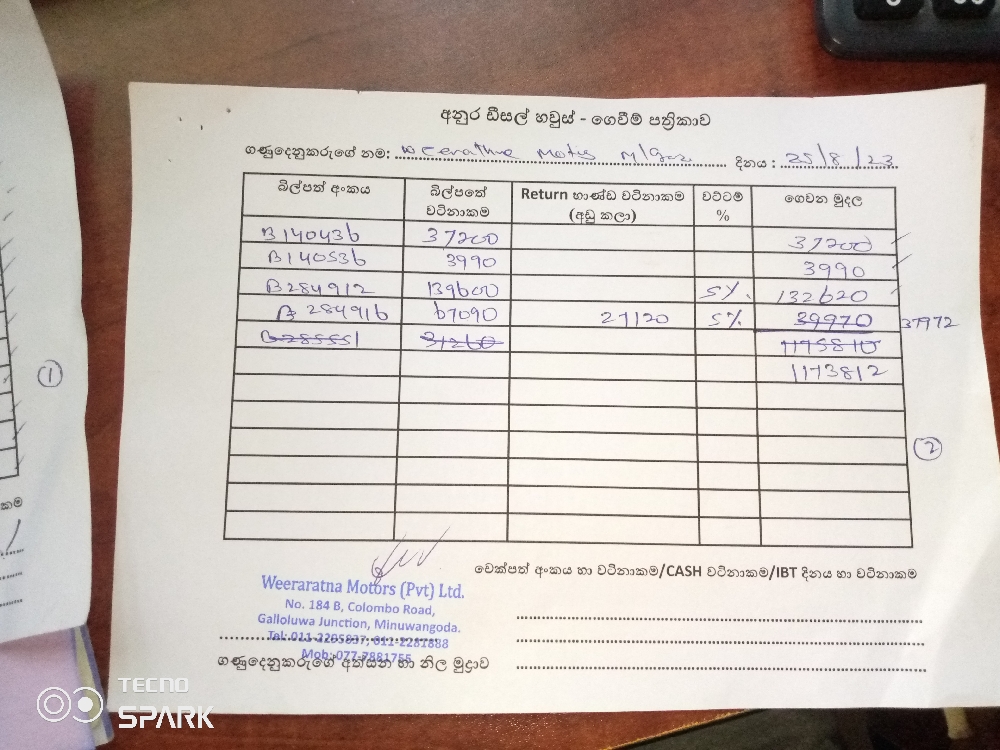 අනුර ඩීසල් හවුස් - ගෙවීම් පත්‍රිකාව
ගණුදෙනුකරුගේ නම: දිනය : 25/8/23
බිල්පත් අංකය බිල්පතේ වටිනාකම Return භාණ්ඩ වටිනාකම (අඩු කලා) වට්ටම් % ගෙවන මුදල
B140436 37200 37200
B140536 3990 3990
B284912 139600 5% 132620
B 284916 67090 27120 5% 39970 37972
B285551 31260 1175810
1173812
1
2
චෙක්පත් අංකය හා වටිනාකම/CASH වටිනාකම/IBT දිනය හා වටිනාකම
Weeraratna Motors (Pvt) Ltd.
No. 184 B, Colombo Road,
Galloluwa Junction, Minuwangoda.
Tel: 011-2295837, 011-2281888
Mob: 077-7881755
ගණුදෙනුකරුගේ අත්සන හා නිල මුද්‍රාව
කම
TECNO
SPARK